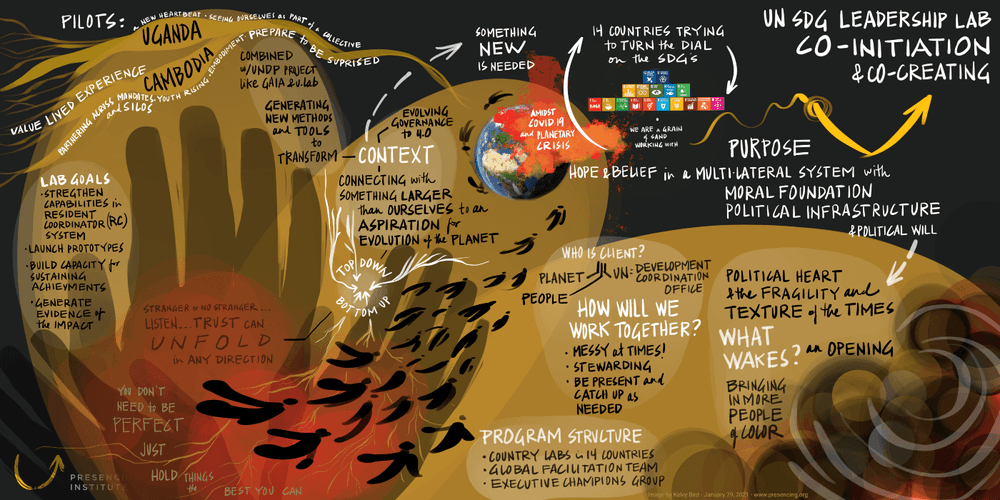 PILOTS:
A NEW HEARTBEAT · SEEING OURSELVES AS PART of A COLLECTIVE
UGANDA
CAMBODIA
PREPARE to BE SUPRISED
VALUE LIVED EXPERIENCE
PARTNERING ACROSS MANDATES
and SILOS
YOUTH RISING
EMBODIMENT
COMBINED
w/UNDP PROJECT
like GAIA & u.lab
GENERATING
NEW METHODS
and TOOLS
to
TRANSFORM
EVOLVING
GOVERNANCE
to 4.0
CONTEXT
CONNECTING with
SOMETHING LARGER
than OURSELVES to an
ASPIRATION for
EVOLUTION of the PLANET
TOP DOWN
BOTTOM UP
LAB GOALS
· STREGTHEN
CAPABILITIES in
RESIDENT
COORDINATOR (RC)
SYSTEM
· LAUNCH PROTOTYPES
· BUILD CAPACITY for
SUSTAINING
ACHIEVMENTS
· GENERATE
EVIDENCE of
the IMPACT
STRANGER or NO STRANGER...
LISTEN... TRUST CAN
UNFOLD
in ANY DIRECTION
YOU DON'T
NEED to BE
PERFECT
JUST
HOLD THINGS
the
BEST YOU CAN
PRESENCING
INSTITUTE
SOMETHING
NEW
IS NEEDED
AMIDST
COVID 19
and PLANETARY
CRISIS
14 COUNTRIES TRYING
to TURN the DIAL
on the SDG's
WE ARE A GRAIN
of SAND
WORKING WITH
UN SDG LEADERSHIP LAB
CO-INITIATION
& CO-CREATING
PURPOSE
HOPE & BELIEF in a MULTI-LATERAL SYSTEM with
MORAL FOUNDATION
POLITICAL INFRASTRUCTURE
& POLITICAL WILL
WHO IS CLIENT?
PLANET
PEOPLE
UN: DEVELOPMENT
COORDINATION
OFFICE
HOW WILL WE
WORK TOGETHER?
· MESSY at TIMES!
· STEWARDING
· BE PRESENT and
CATCH UP as
NEEDED
POLITICAL HEART
& the FRAGILITY and
TEXTURE of the TIMES
WHAT
WAKES? an OPENING
BRINGING
IN MORE
PEOPLE
of COLOR
PROGRAM STRUCTURE
· COUNTRY LABS in 14 COUNTRIES
· GLOBAL FACILITATION TEAM
· EXECUTIVE CHAMPIONS GROUP
Image by Kelvy Bird - January 29, 2021 - www.presencing.org